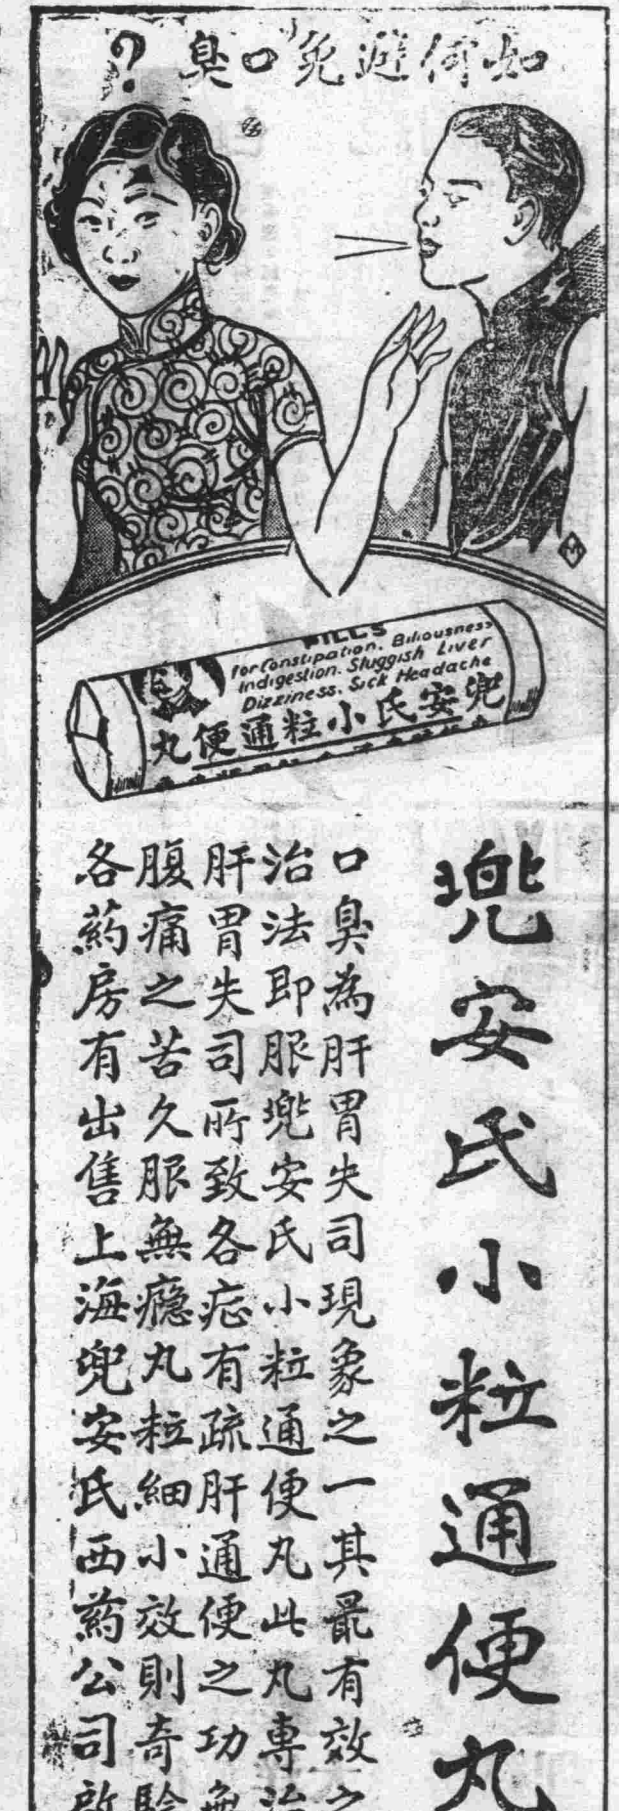 如何避免口臭?
PILLS
for Constipation. Biliousness
Indigestion. Sluggish Liver
Dizziness. Sick Headache
兜安氏小粒通便丸
兜安氏小粒通便丸
口臭為肝胃失司現象之一其最有效之
治法即服兜安氏小粒通便丸此丸專治
肝胃失司所致各症有疏肝通便之功無
腹痛之苦久服無癮丸粒細小效則奇驗
各葯房有出售上海兜安氏西葯公司啟
M